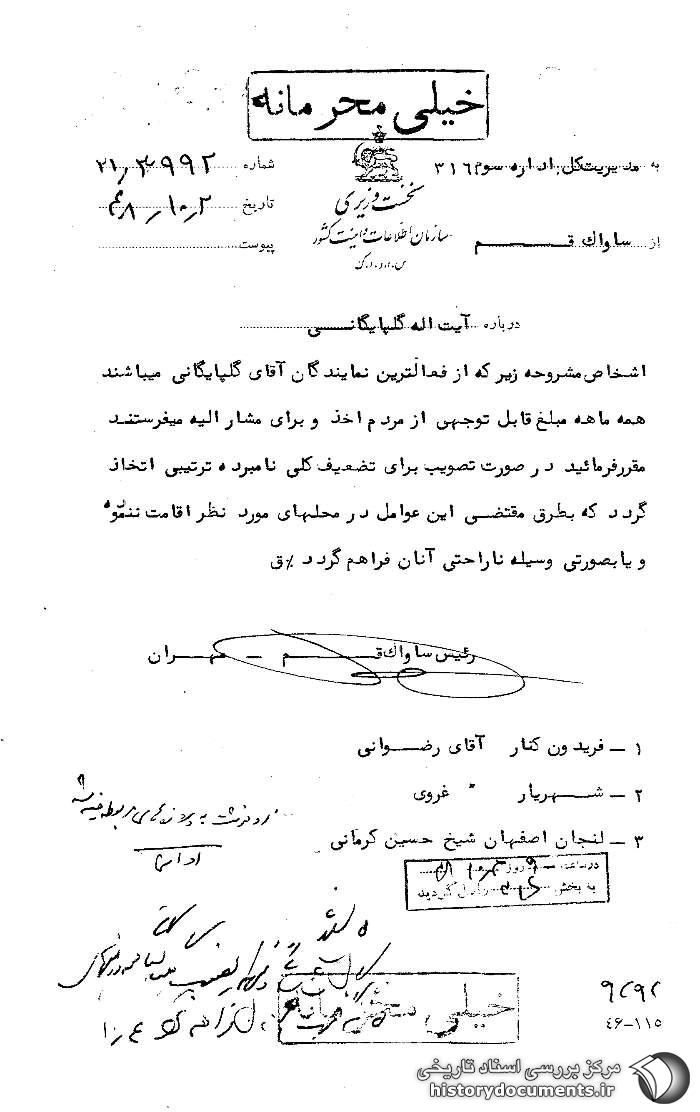 خیلی محرمانه
به مدیریت کل اداره سوم ۳۱۶
شماره ۲۱/۲۹۹۲
نخست وزیری
تاریخ ۴۸/۱۰/۲
از ساواک قم
سازمان اطلاعات و امنیت کشور
پیوست
س.ا.و.ا.ک
درباره آیت اله گلپایگانی
اشخاص مشروحه زیر که از فعالترین نمایندگان آقای گلپایگانی میباشند
همه ماهه مبلغ قابل توجهی از مردم اخذ و برای مشار الیه میفرستند
مقرر فرمائید در صورت تصویب برای تضعیف کلی نامبرده ترتیبی اتخاذ
گردد که بطرق مقتضی این عوامل در محلهای مورد نظر اقامت ننموده
و یا بصورتی وسیله ناراحتی آنان فراهم گردد ٪ق
رئیس ساواک قم – مهران
۱ – فریدون کنار آقای رضوانی
۲ – شهریار " غروی
۳ – لنجان اصفهان شیخ حسین کرمانی
در ساعت روز
به بخش گردید
خیلی محرمانه
۹۲۹۲
٤٦-١١٥
مرکز بررسی اسناد تاریخی
historydocuments.ir